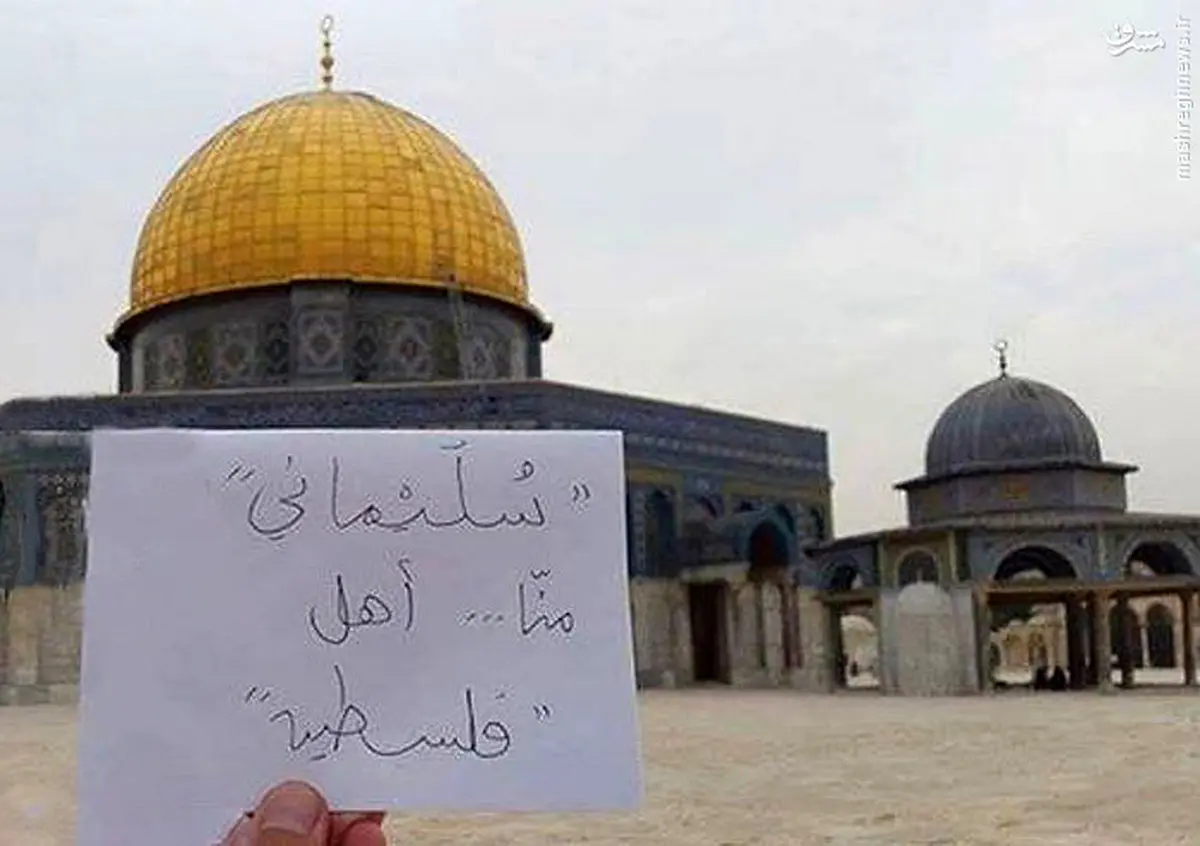 "سُلَيْماني"
منّا... أهل
"فلسطين"
مشرق
mashreghnews.ir